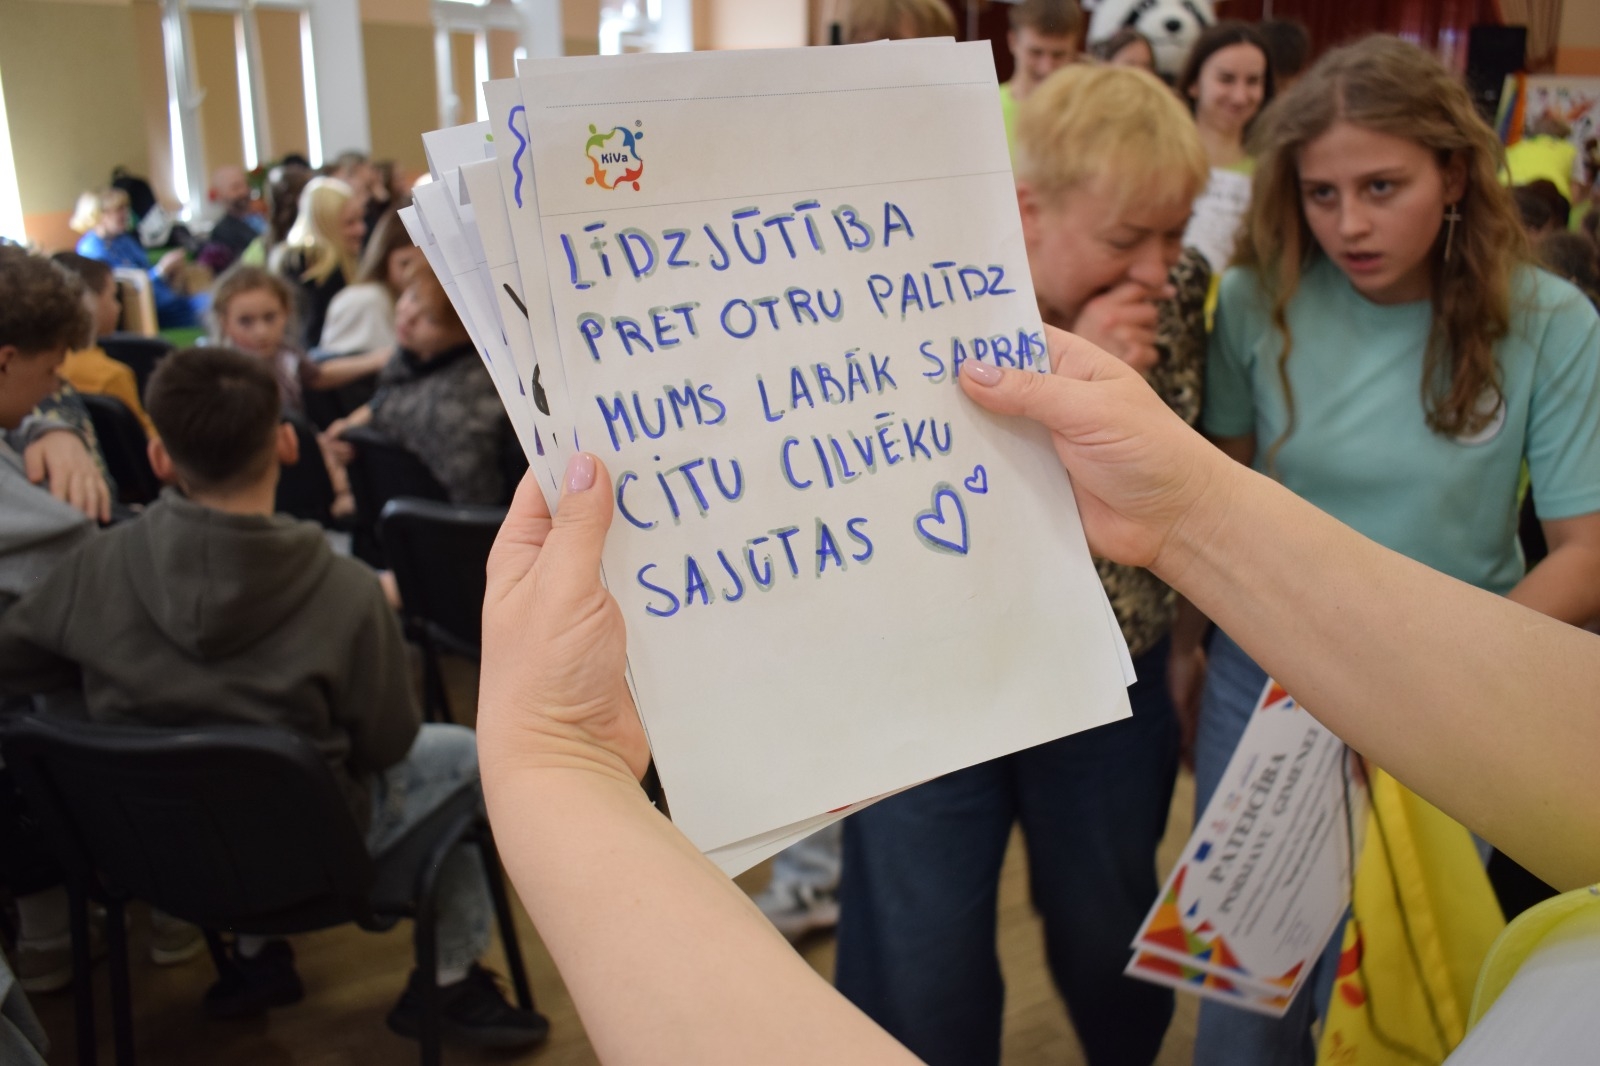 KiVa
LĪDZJŪTĪBA
PRET OTRU PALĪDZ
MUMS LABĀK SAPRAS
CITU CILVĒKU
SAJŪTAS
PATEICĪBA